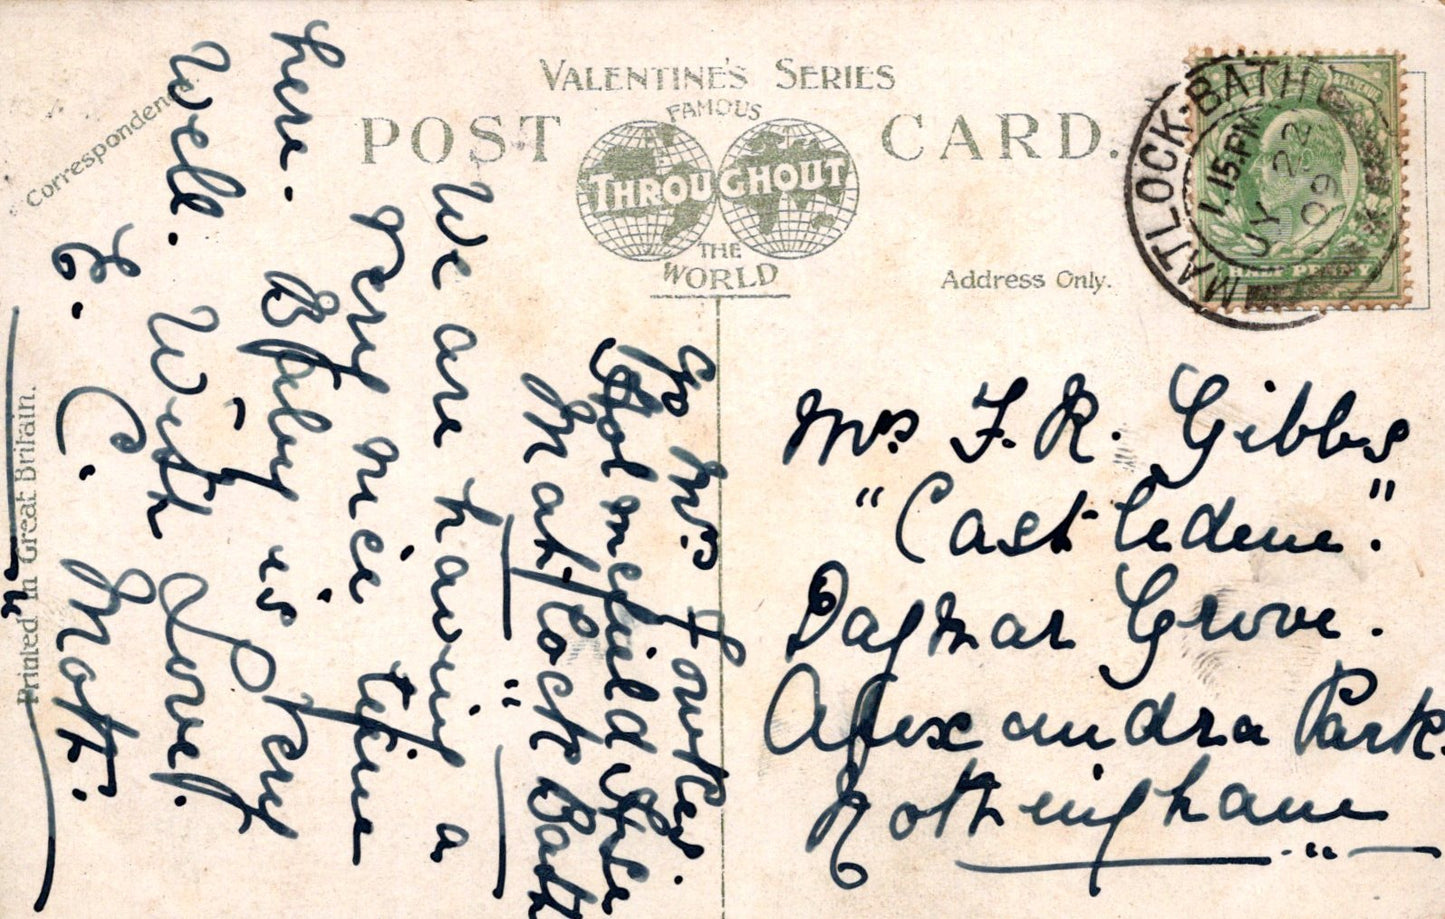 VALENTINE'S SERIES
FAMOUS
POST CARD.
THROUGHOUT
THE
WORLD
Correspondence
Address Only.
Printed in Great Britain.
MATLOCK·BATH
1.15.PM
JY 22
09
HALF PENNY
Mrs F. R. Gibbs
"Castledene".
Dagmar Grove.
Alexandra Park.
Nottingham
Go Mrs Fowkes.
Holmefield Hse
Matlock Bath
We are having a
very nice time
here. Baby is very
well. With Love,
E. C. Mott.